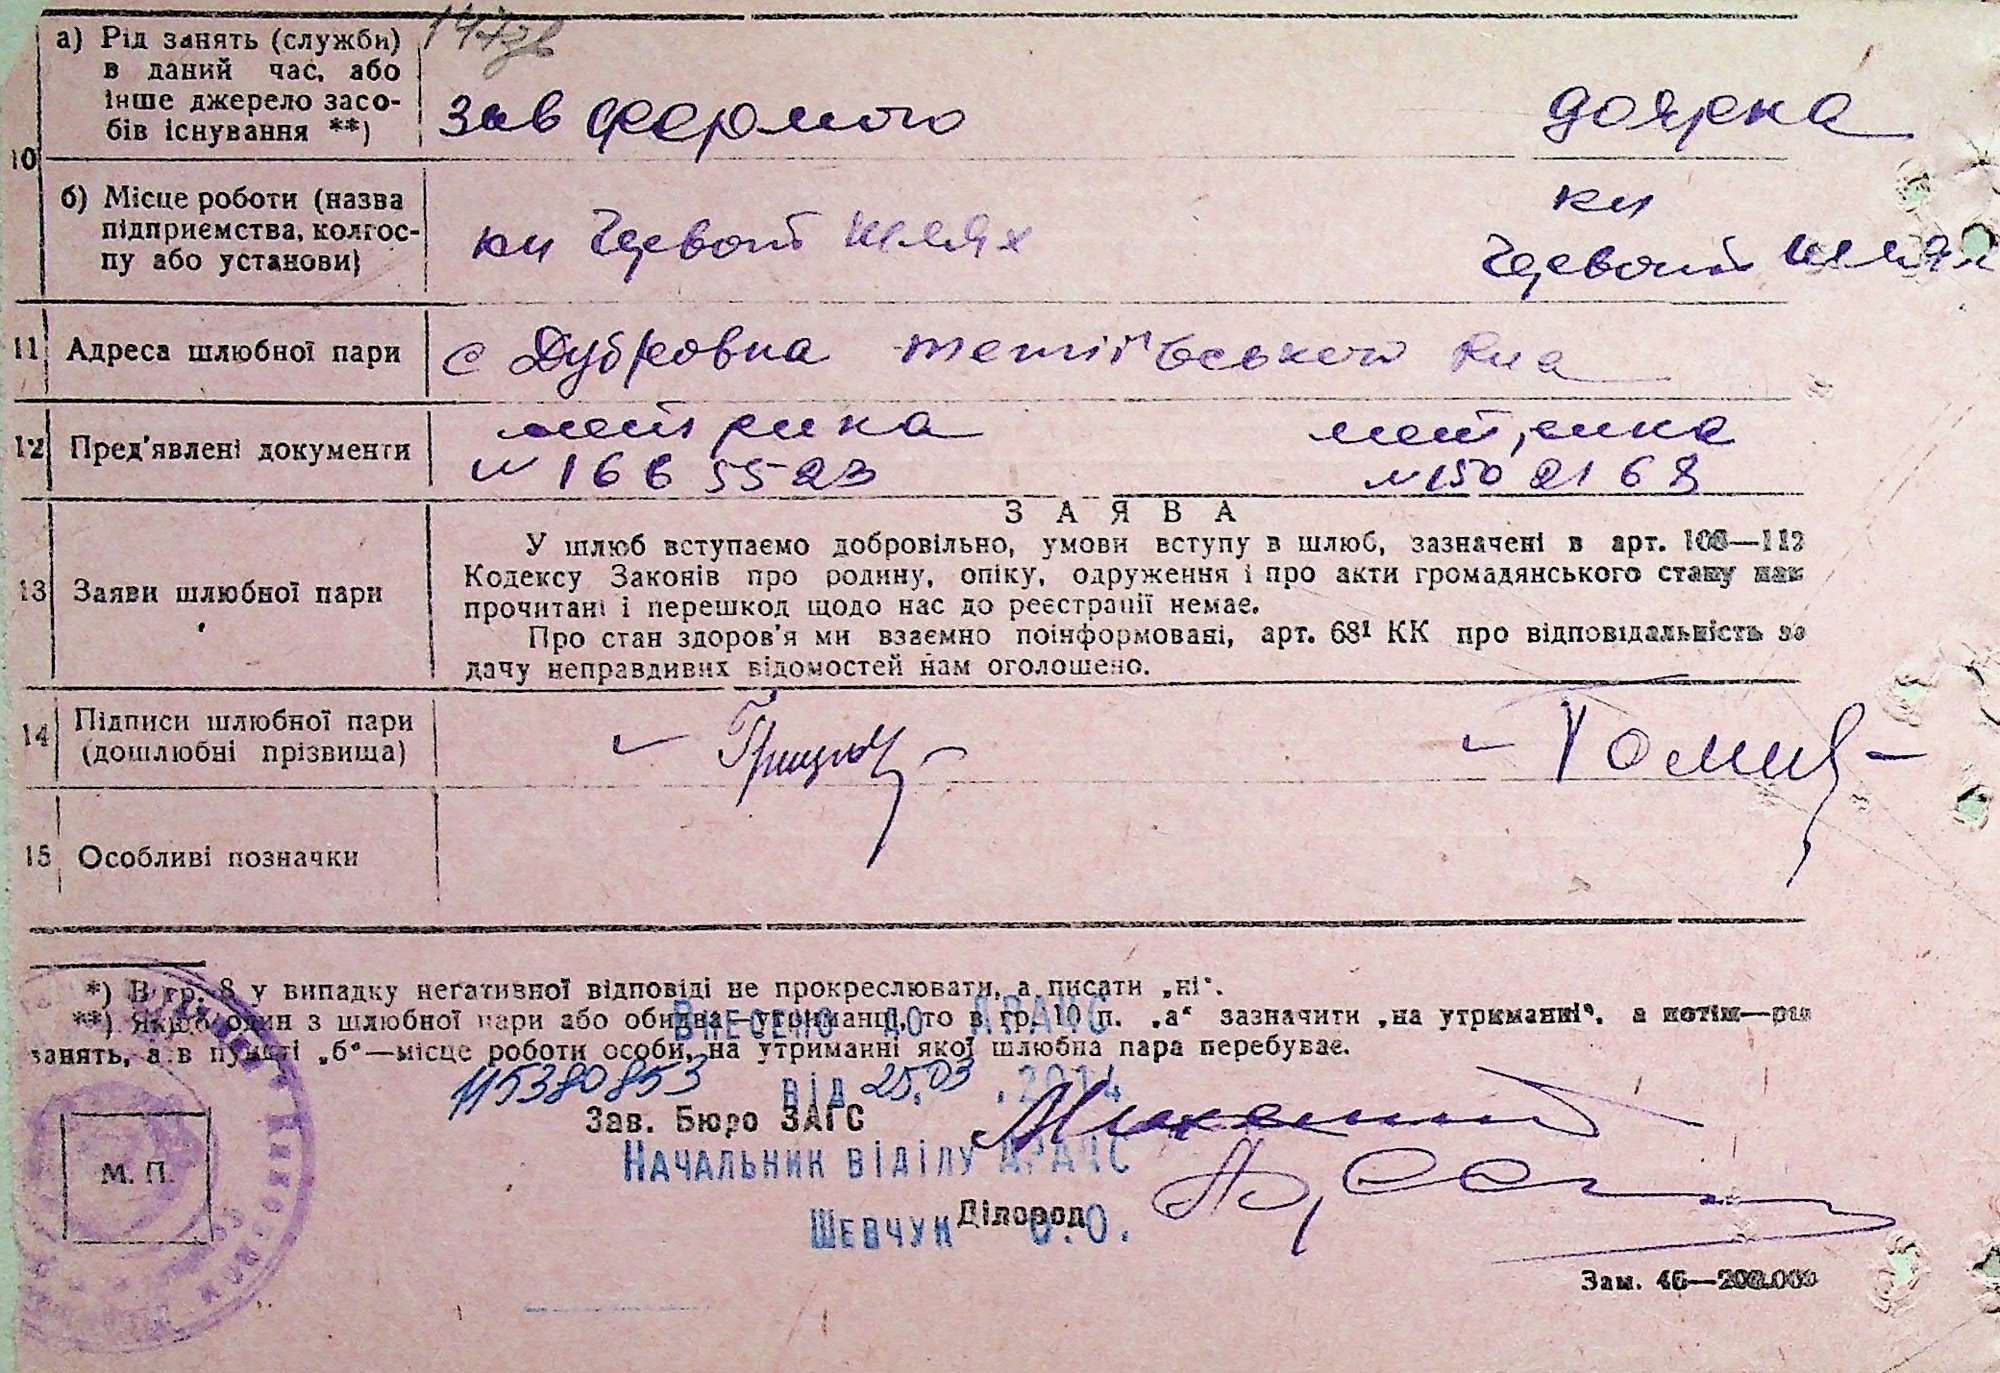 147зв
а) Рід занять (служби)
в даний час, або
інше джерело засо-
бів існування **)
зав фермою
доярка
10
б) Місце роботи (назва
підприємства, колгос-
пу або установи)
кп Червоний шлях
кп
Червоний шлях
11 Адреса шлюбної пари
с Дубровка тетіївського р-на
12 Пред'явлені документи
метрика
метрика
№ 1665523
№ 1502168
13 Заяви шлюбної пари
ЗАЯВА
У шлюб вступаємо добровільно, умови вступу в шлюб, зазначені в арт. 106—112
Кодексу Законів про родину, опіку, одруження і про акти громадянського стану нам
прочитані і перешкод щодо нас до реєстрації немає.
Про стан здоров'я ми взаємно поінформовані, арт. 68¹ КК про відповідальність за
дачу неправдивих відомостей нам оголошено.
14 Підписи шлюбної пари
(дошлюбні прізвища)
15 Особливі позначки
*) В гр. 8 у випадку негативної відповіді не прокреслювати, а писати „ні".
**) Якщо один з шлюбної пари або обидва—утриманці, то в гр. 10 п. „а" зазначити „на утриманні", а потім—рід
занять, а в пункті „б"—місце роботи особи, на утриманні якої шлюбна пара перебуває.
Внесено до АРАЦС
115380853
від 25.03.2014
Зав. Бюро ЗАГС
Начальник відділу АРАЦС
М. П.
Діловод
Шевчук О.О.
Зам. 46—200.000